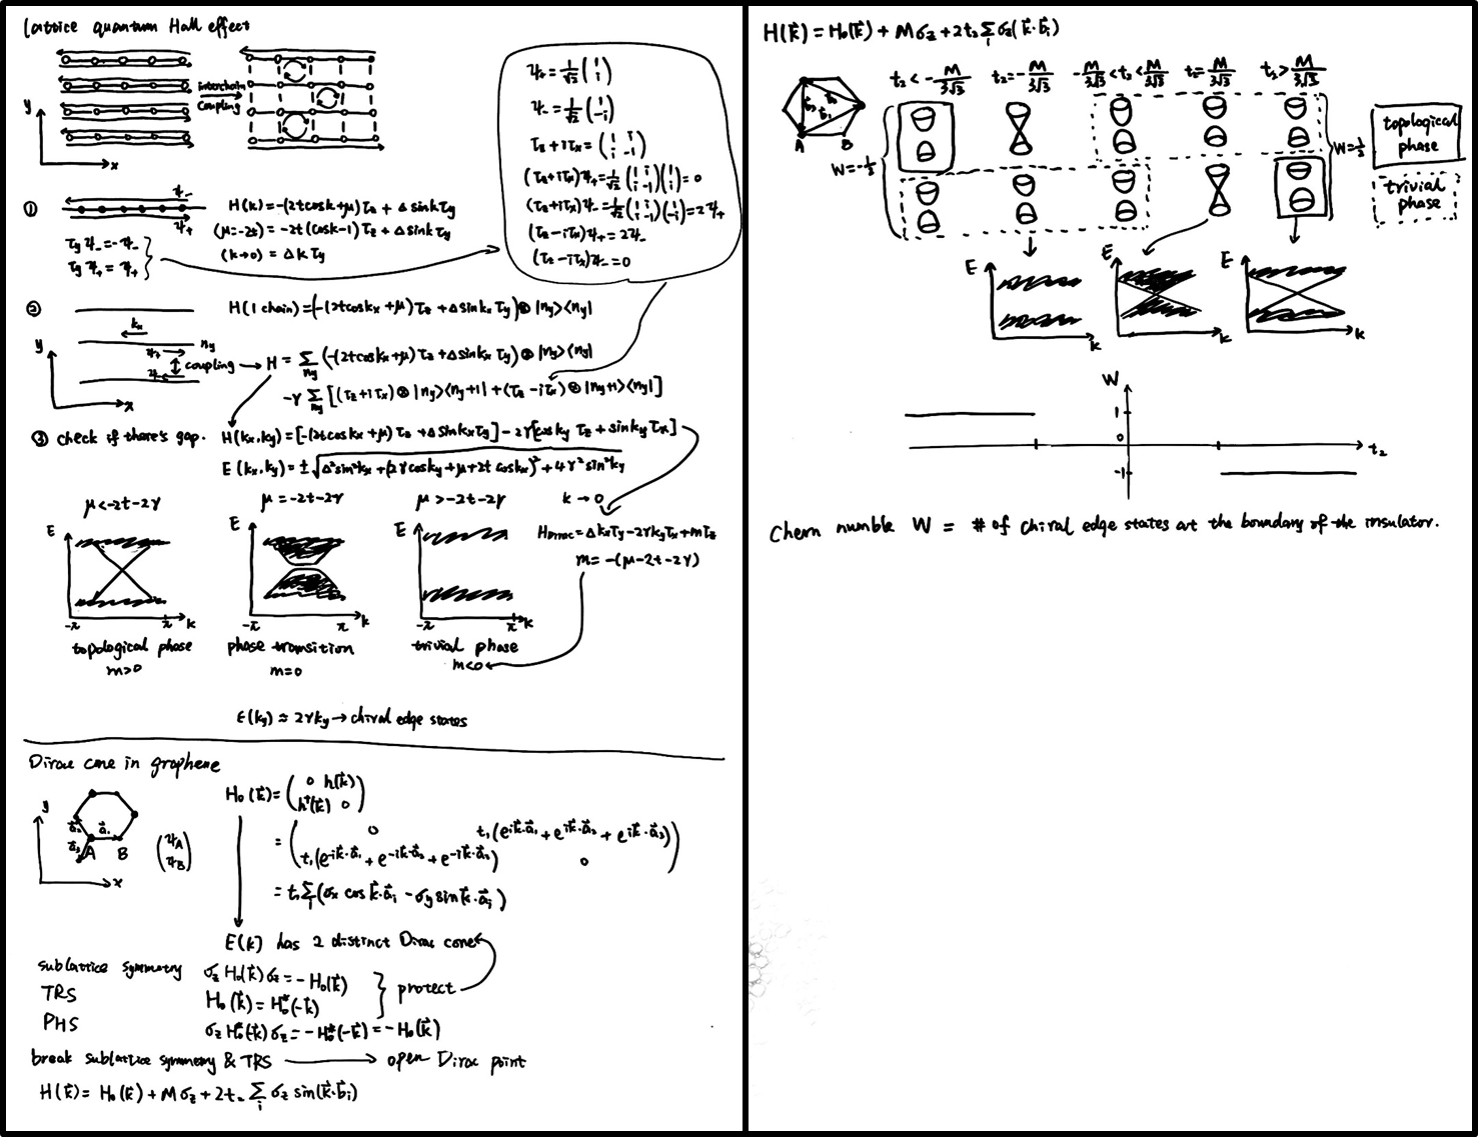 lattice quantum Hall effect
interchain
coupling
y
x
① ψ₋
ψ₊
H(k)=-(2tcosk+μ)τz + Δ sinkτy
(μ=-2t) = -2t(cosk-1)τz + Δsinkτy
(k→0) = Δkτy
τyψ₋=-ψ₋
τyψ₊=ψ₊
ψ₊=1/√2 (1 i)
ψ₋=1/√2 (1 -i)
τz+iτx=(1 i i -1)
(τz+iτx)ψ₊=1/√2 (1 i i -1)(1 i)=0
(τz+iτx)ψ₋=1/√2 (1 i i -1)(1 -i)=2ψ₊
(τz-iτx)ψ₊=2ψ₋
(τz-iτx)ψ₋=0
②
H(1 chain)=(-(2tcoskx+μ)τz+Δsinkxτy)⊗|ny><ny|
kx
ny
ψ₊
coupling
y
x
H = Σ ny (-(2tcoskx+μ)τz+Δsinkxτy)⊗|ny><ny|
-γ Σ ny [(τz+iτx)⊗|ny><ny+1| + (τz-iτx)⊗|ny+1><ny|]
③ check if there's gap. H(kx,ky)=[-(2tcoskx+μ)τz+Δsinkxτy]-2γ[cosky τz+sinky τx]
E(kx,ky)=±√Δ²sin²kx+(2γcosky+μ+2t coskx)²+4γ²sin²ky
μ<-2t-2γ
μ=-2t-2γ
μ>-2t-2γ
k→0
HDirac=Δkxτy-2γkyτx+mτz
m=-(μ-2t-2γ)
E
-π π k
E
-π π k
E
-π π k
topological phase
m>0
phase transition
m=0
trivial phase
m<0
E(ky)≈2γky→chiral edge states
Dirac cone in graphene
y
x
a⃗₂ a⃗₁
a⃗₃ A B
(ψA ψB)
H₀(k⃗)=(0 h(k⃗) h†(k⃗) 0)
=(0 t₁(e^ik⃗·a⃗₁+e^ik⃗·a⃗₂+e^ik⃗·a⃗₃)
t₁(e^-ik⃗·a⃗₁+e^-ik⃗·a⃗₂+e^-ik⃗·a⃗₃) 0)
=t₁Σ i(σx cos k⃗·a⃗i - σy sin k⃗·a⃗i)
E(k) has 2 distinct Dirac cone
sublattice symmetry σz H₀(k⃗)σz=-H₀(k⃗)
TRS H₀(k⃗)=H₀*(-k⃗)
protect
PHS σz H₀*(k⃗)σz=-H₀*(-k⃗)=-H₀(k⃗)
break sublattice symmetry & TRS → open Dirac point
H(k⃗)= H₀(k⃗)+Mσz+2t₂ Σ i σz sin(k⃗·b⃗i)
H(k⃗)=H₀(k⃗)+Mσz+2t₂Σ i σz(k⃗·b⃗i)
A B
t₂<-M/3√3
t₂=-M/3√3
-M/3√3<t₂<M/3√3
t₂=M/3√3
t₂>M/3√3
W=-½
W=½
topological
phase
trivial
phase
E
k
E
k
E
k
W
1
0
-1
t₂
Chern numble W = # of chiral edge states at the boundary of the insulator.